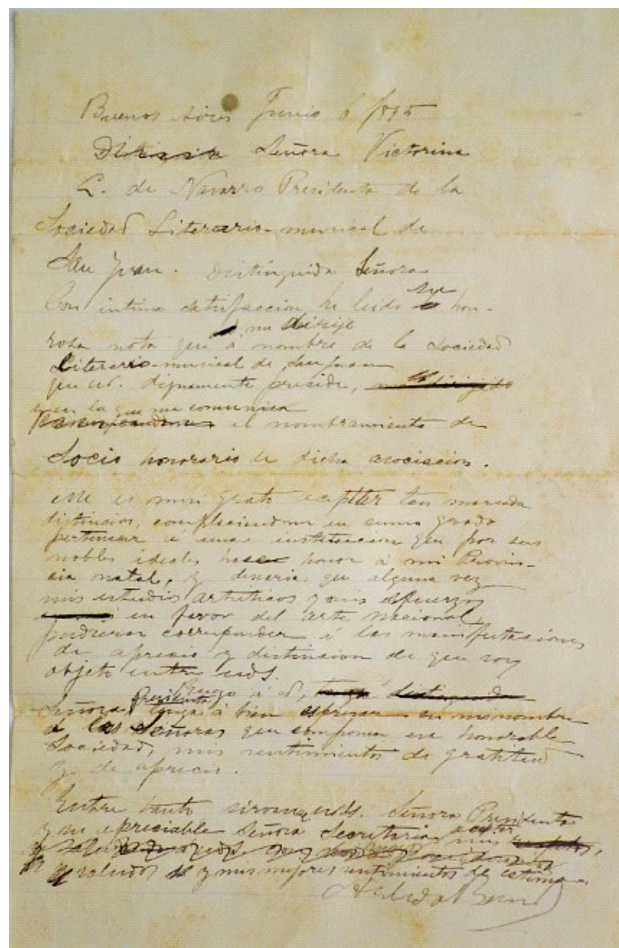 Buenos Aires Junio 6 1895
Señora Victorina
L. de Navarro Presidenta de la
Sociedad Literario-musical de
San Juan. Distinguida Señora
Con intima satisfaccion he leido la hon-
rosa nota que me dirije
á nombre de la Sociedad
Literario-musical de San Juan
que ud. dignamente preside,
en la que me comunica
el nombramiento de
Socio honorario de dicha asociacion.
Me es muy grato aceptar tan marcada
distincion, complaciendome en sumo grado
pertenecer á una institucion que por sus
nobles ideales hacen honor á mi Provin-
cia natal, y desearia que alguna vez
mis estudios artisticos y mis esfuerzos
en favor del arte nacional,
pudieran corresponder á las manifestaciones
de aprecio y distincion de que soy
objeto entre uds.
Ruego á d,
Señora Presidenta tenga á bien espresar en mi nombre
á las Señoras que componen esa honorable
Sociedad, mis sentimientos de gratitud
y de aprecio.
Entre tanto uds. Señora Presidenta
y su apreciable Señora Secretaria aceptar mis
saludos y mis mejores sentimientos de estima